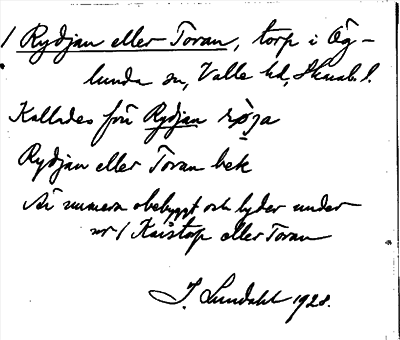 1 Rydjan eller Toran, torp i Ög-
lunda sn, Valle hd, Skarab. l.
Kallades förr Rydjan röja
Rydjan eller Toran bek
Är numera obebyggt och lyder under
nr 1 Kaistorp eller Toran
J. Lundahl 1928.